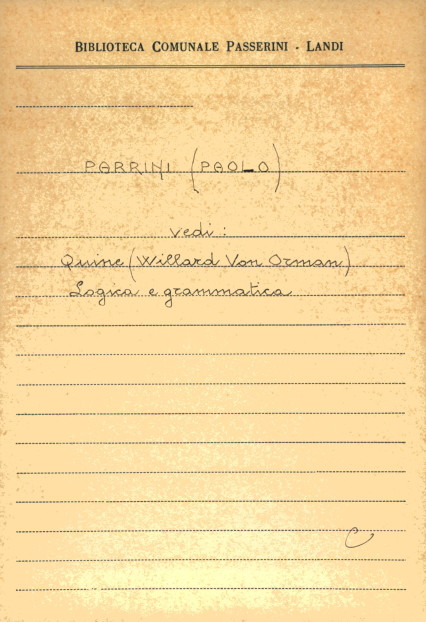 BIBLIOTECA COMUNALE PASSERINI - LANDI
PARRINI (PAOLO)
vedi :
Quine (Willard Von Orman)
Logica e grammatica
C